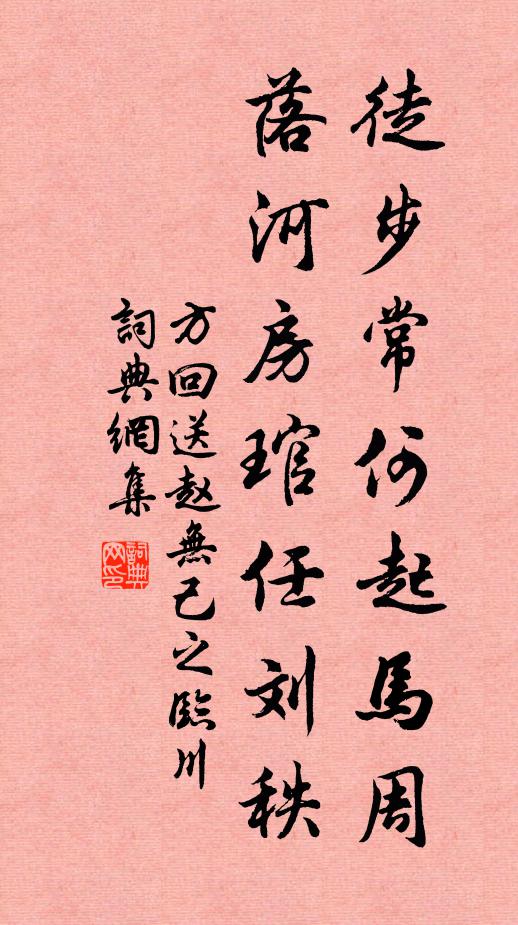 徒步常何起馬周
落河房琯任刘秩
方回送赵無己之臨川
詞典網集
詞典網印